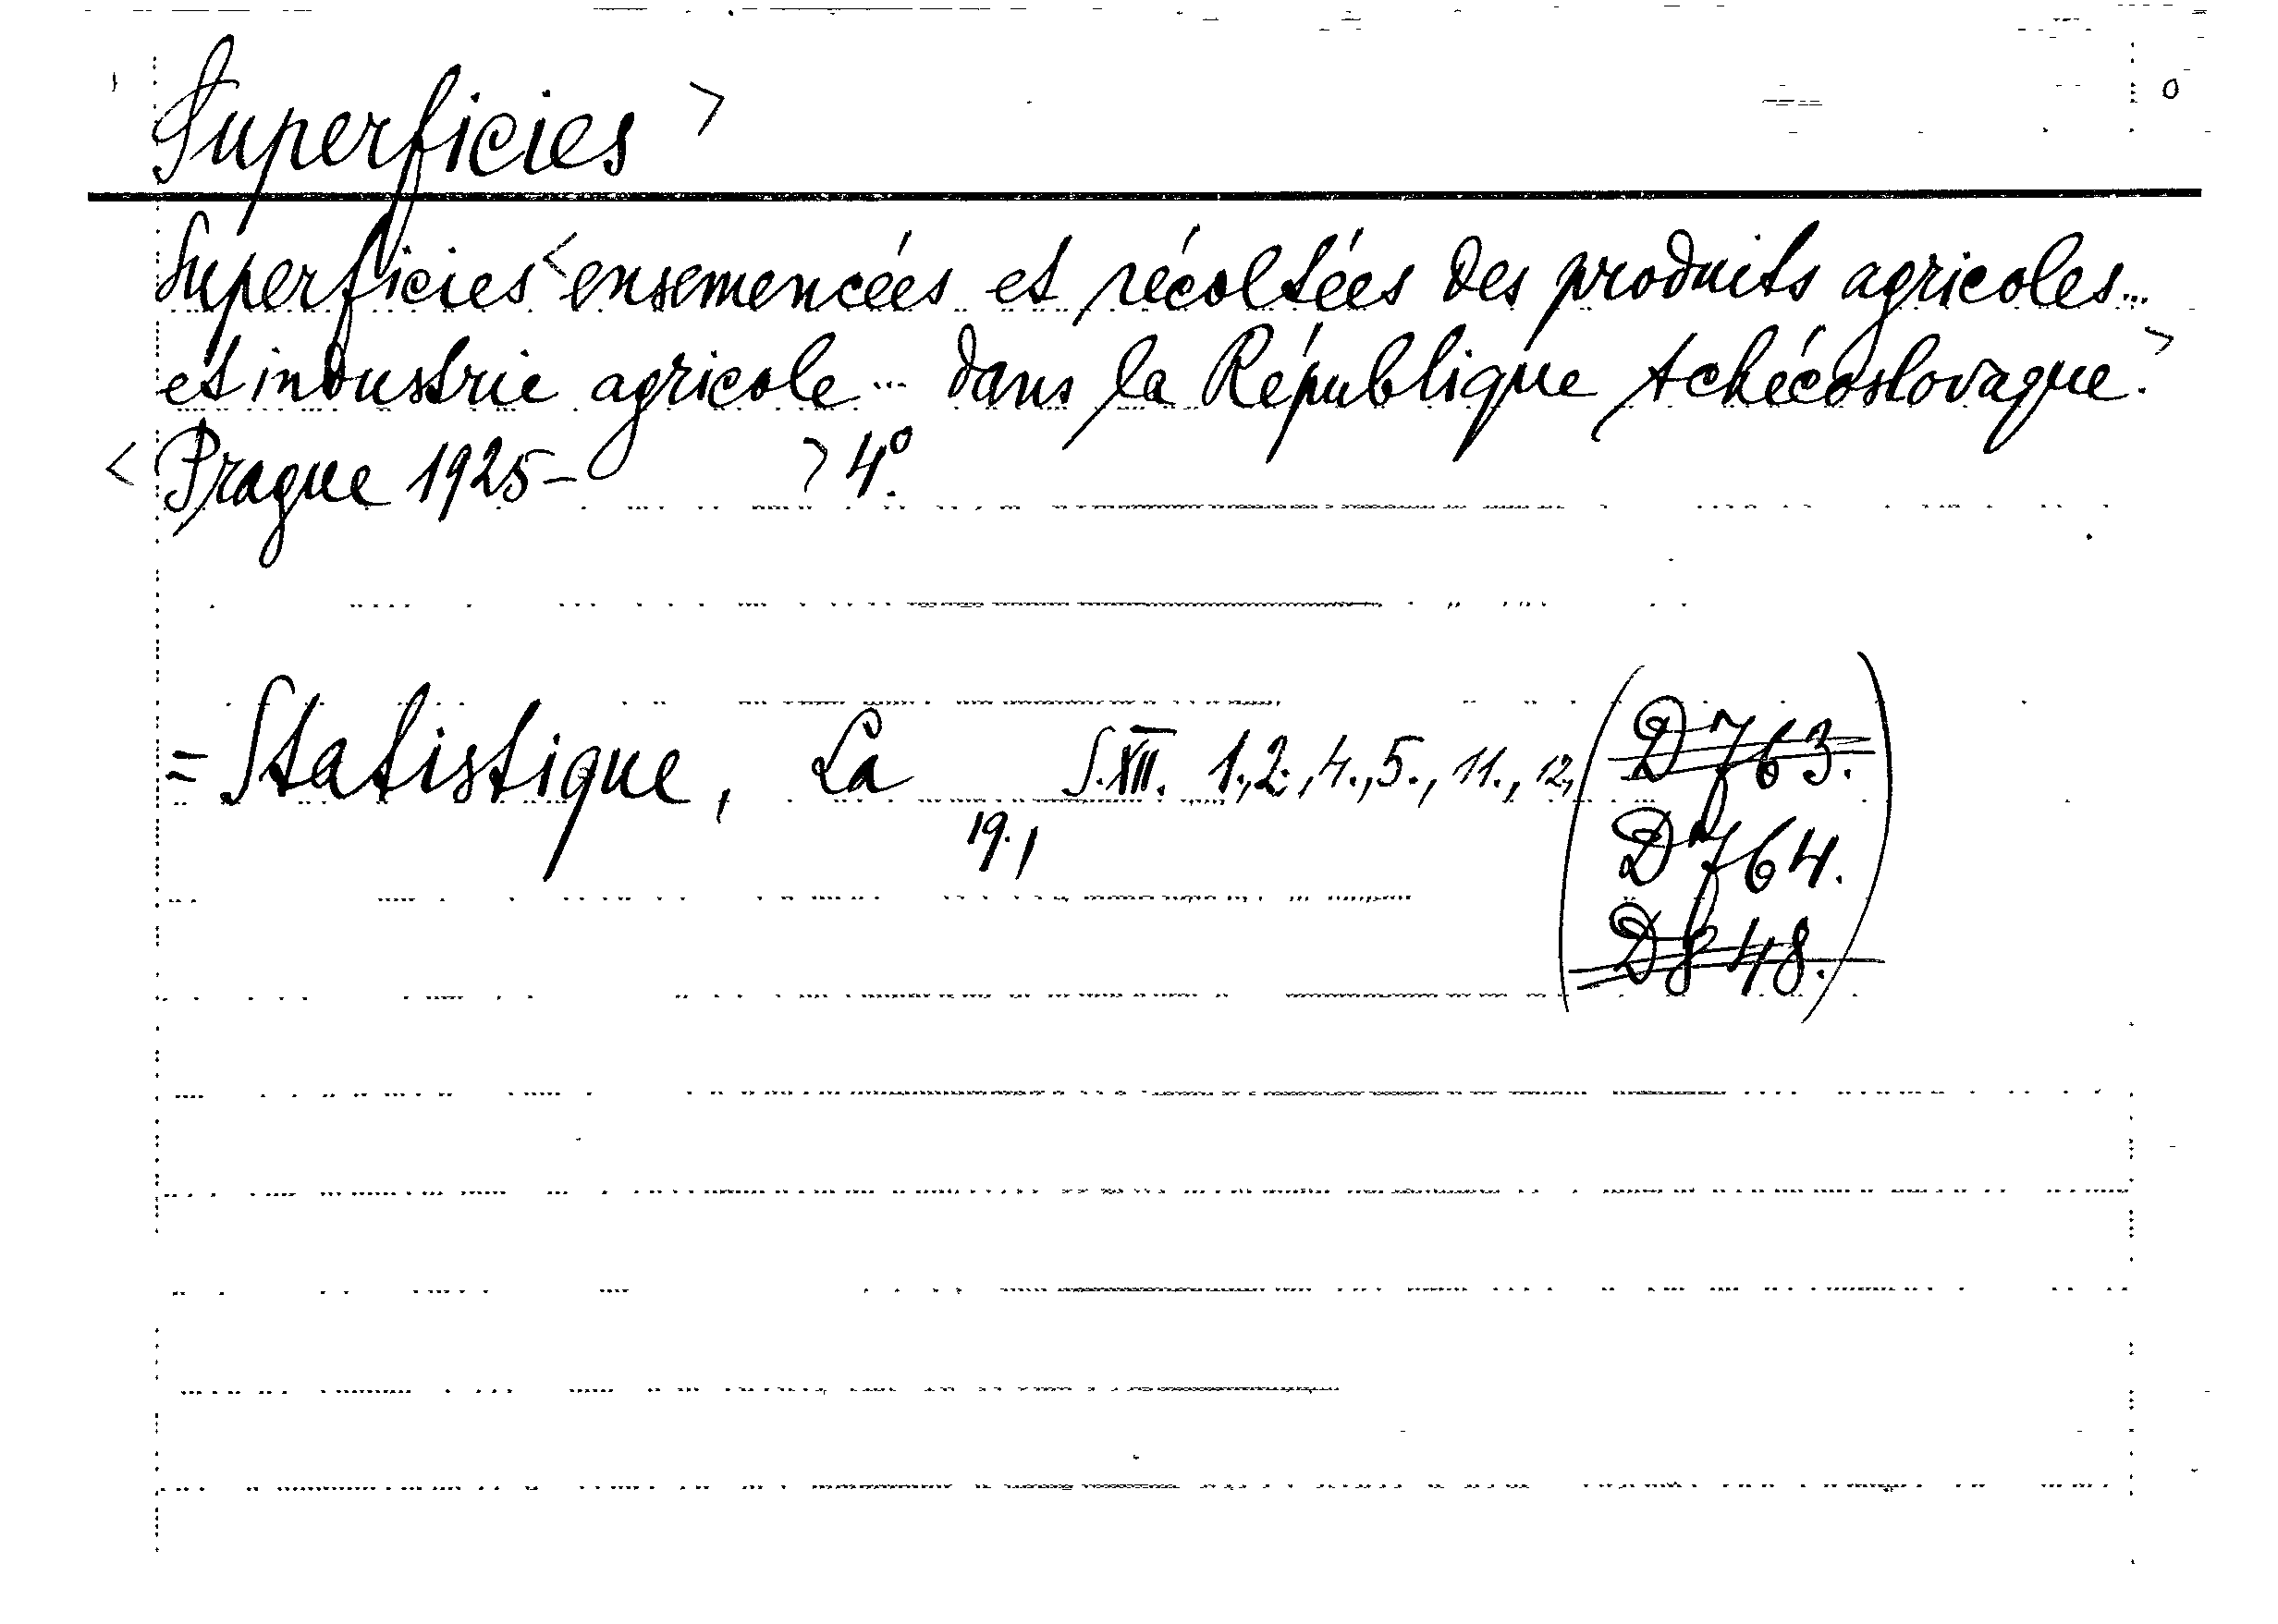 Superficies >
Superficies < ensemencées et récoltées des produits agricoles...
et industrie agricole... dans la République tchécoslovaque. >
< Prague 1925- > 4°.
= Statistique, La S. XII. 1., 2., 4., 5., 11., 12., (D 763.
19.,
D 764.
D 848.)